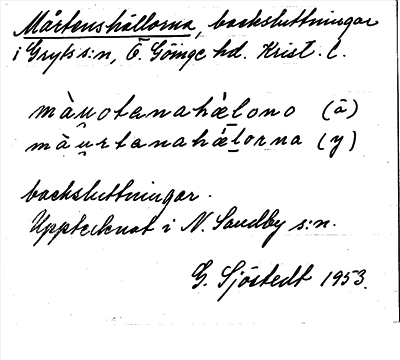 Mårtenshällorna, backsluttningar
i Gryts s:n, Ö. Göinge hd. Krist. l.
màu̯otanahǽlono (ä)
màu̯rtanahǽlorna (y)
backsluttningar.
Upptecknat i N. Sandby s:n.
G. Sjöstedt 1953.